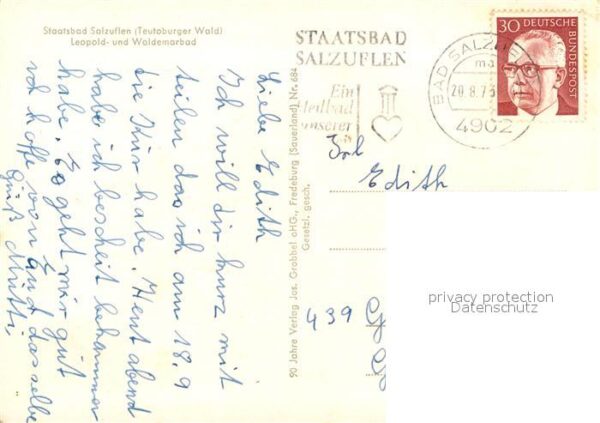 Staatsbad Salzuflen (Teutoburger Wald)
Leopold- und Waldemarbad
Liebe Edith
Ich will dir kurz mit
teilen das ich am 18.9
die Kur habe. Heut abend
habe ich bescheit bekommen
habe. Es geht mir gut
ich hoffe von euch dasselbe
Gruß Mutti,
90 Jahre Verlag Jos. Grobbel oHG., Fredeburg (Sauerland) Nr. 684
Gesetzl. gesch.
STAATSBAD
SALZUFLEN
Ein
Heilbad
unserer
BAD SALZU
ma
20.8.73
4902
30 DEUTSCHE
BUNDESPOST
Frl
Edith
439 G
privacy protection
Datenschutz